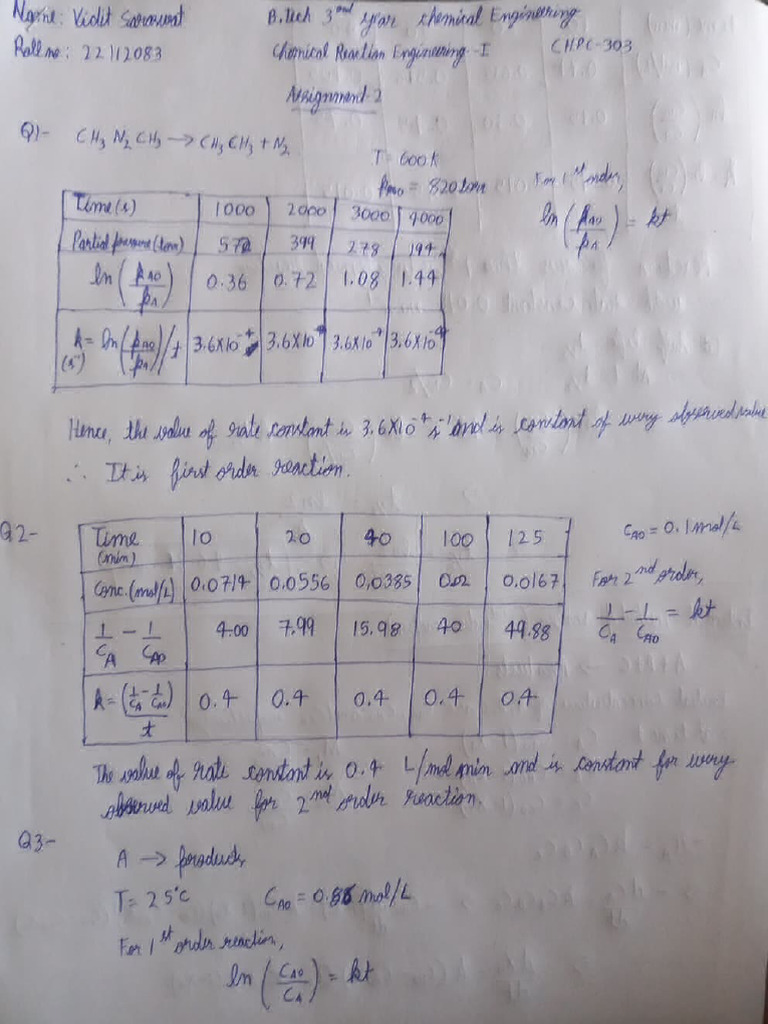 Name: Vidit Saraswat B.Tech 3rd year chemical Engineering
Roll no: 22112083 Chemical Reaction Engineering-I CHPC-303
Assignment-2
Q1- CH3 N2 CH3 → CH3 CH3 + N2
T = 600K
pA0 = 820 torr For 1st order,
ln (pA0/pA) = kt
Time(s) 1000 2000 3000 4000
Partial pressure (torr) 572 399 278 194
ln (pA0/pA) 0.36 0.72 1.08 1.44
k = ln(pA0/pA)/t (s⁻¹) 3.6X10⁻⁴ 3.6X10⁻⁴ 3.6X10⁻⁴ 3.6X10⁻⁴
Hence, the value of rate constant is 3.6X10⁻⁴ s⁻¹ and is constant of every observed value
∴ It is first order reaction.
Q2- Time (min) 10 20 40 100 125
CA0 = 0.1 mol/L
Conc. (mol/L) 0.0714 0.0556 0.0385 0.02 0.0167
For 2nd order,
1/CA - 1/CA0 4.00 7.99 15.98 40 49.88
1/CA - 1/CA0 = kt
k = (1/CA - 1/CA0)/t 0.4 0.4 0.4 0.4 0.4
The value of rate constant is 0.4 L/mol min and is constant for every
observed value for 2nd order reaction.
Q3-
A → products
T = 25°C CA0 = mol/L
For 1st order reaction,
ln (CA0/CA) = kt